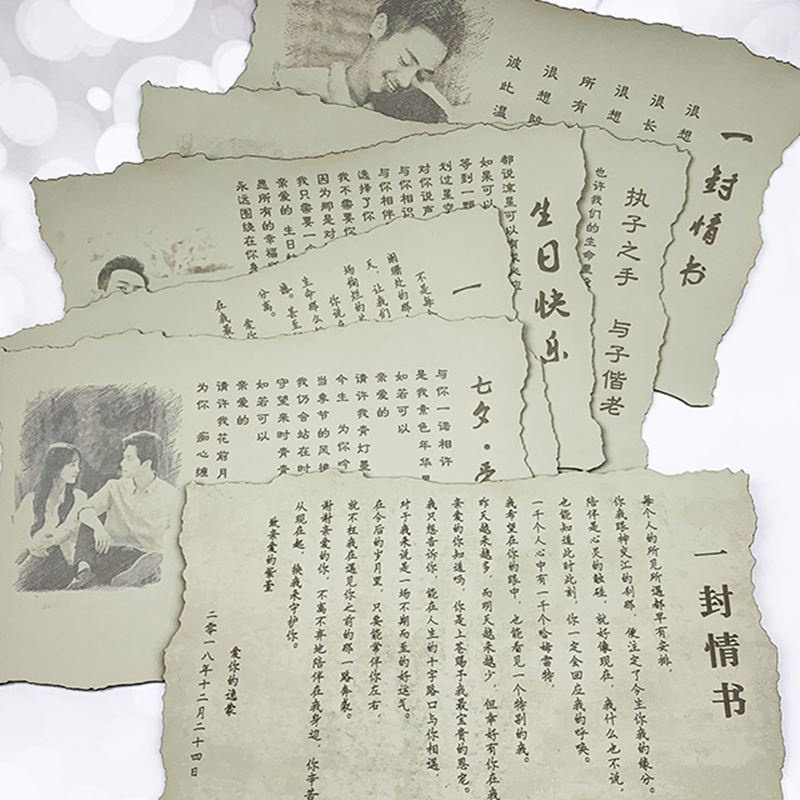 一封情书
很想
很长
很想
所有
很想陪
彼此温
执子之手 与子偕老
也许我们的生命里
生日快乐
都说流星可以有求必应
如果可以
等到一颗
划过星空
对你说声
与你相识
与你相伴
选择了你
我不需要你
因为那是对
我只需要一个
亲爱的 生日快
是所有的幸福
永远围绕在你身
一
不是每
阑珊处的那
天，让我们
场绚烂的
你说
生命那么
憾。甚至
分离。
爱你
在我最
七夕·爱
与你一诺相许
是我素色年华里
如若可以
亲爱的
请许我青灯墨
今生 为你吟
当季节的风拂
我仍会站在时
守望来时青青
如若可以
亲爱的
请许我花前月
为你 痴心缠
一封情书
每个人的所见所遇都早有安排，
你我眼神交汇的刹那，便注定了今生你我的缘分。
陪伴是心灵的触碰，就好像现在，我什么也不说，
也能知道此时此刻，你一定会回应我的呼唤。
一千个人心中有一千个哈姆雷特，
我希望在你的眼中，也能看见一个特别的我。
昨天越来越多，而明天越来越少，但幸好有你在我
亲爱的你知道吗，你是上苍赐予我最宝贵的恩宠。
我只想告诉你，能在人生的十字路口与你相遇，
对于我来说是一场不期而至的好运气。
在今后的岁月里，只要能常伴你左右，
就不枉我在遇见你之前的那一路奔袭。
谢谢亲爱的你，不离不弃地陪伴在我身边，你辛苦
从现在起，换我来守护你。
致亲爱的紫萱
爱你的逸蒙
二零一八年十二月二十四日